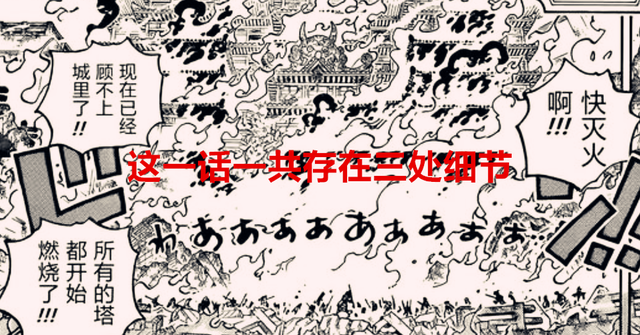 快灭火
啊!!!
现在已经
顾不上
城里了!!
这一话一共存在三处细节
わああああああああ…
所有的塔
都开始
燃烧了!!!